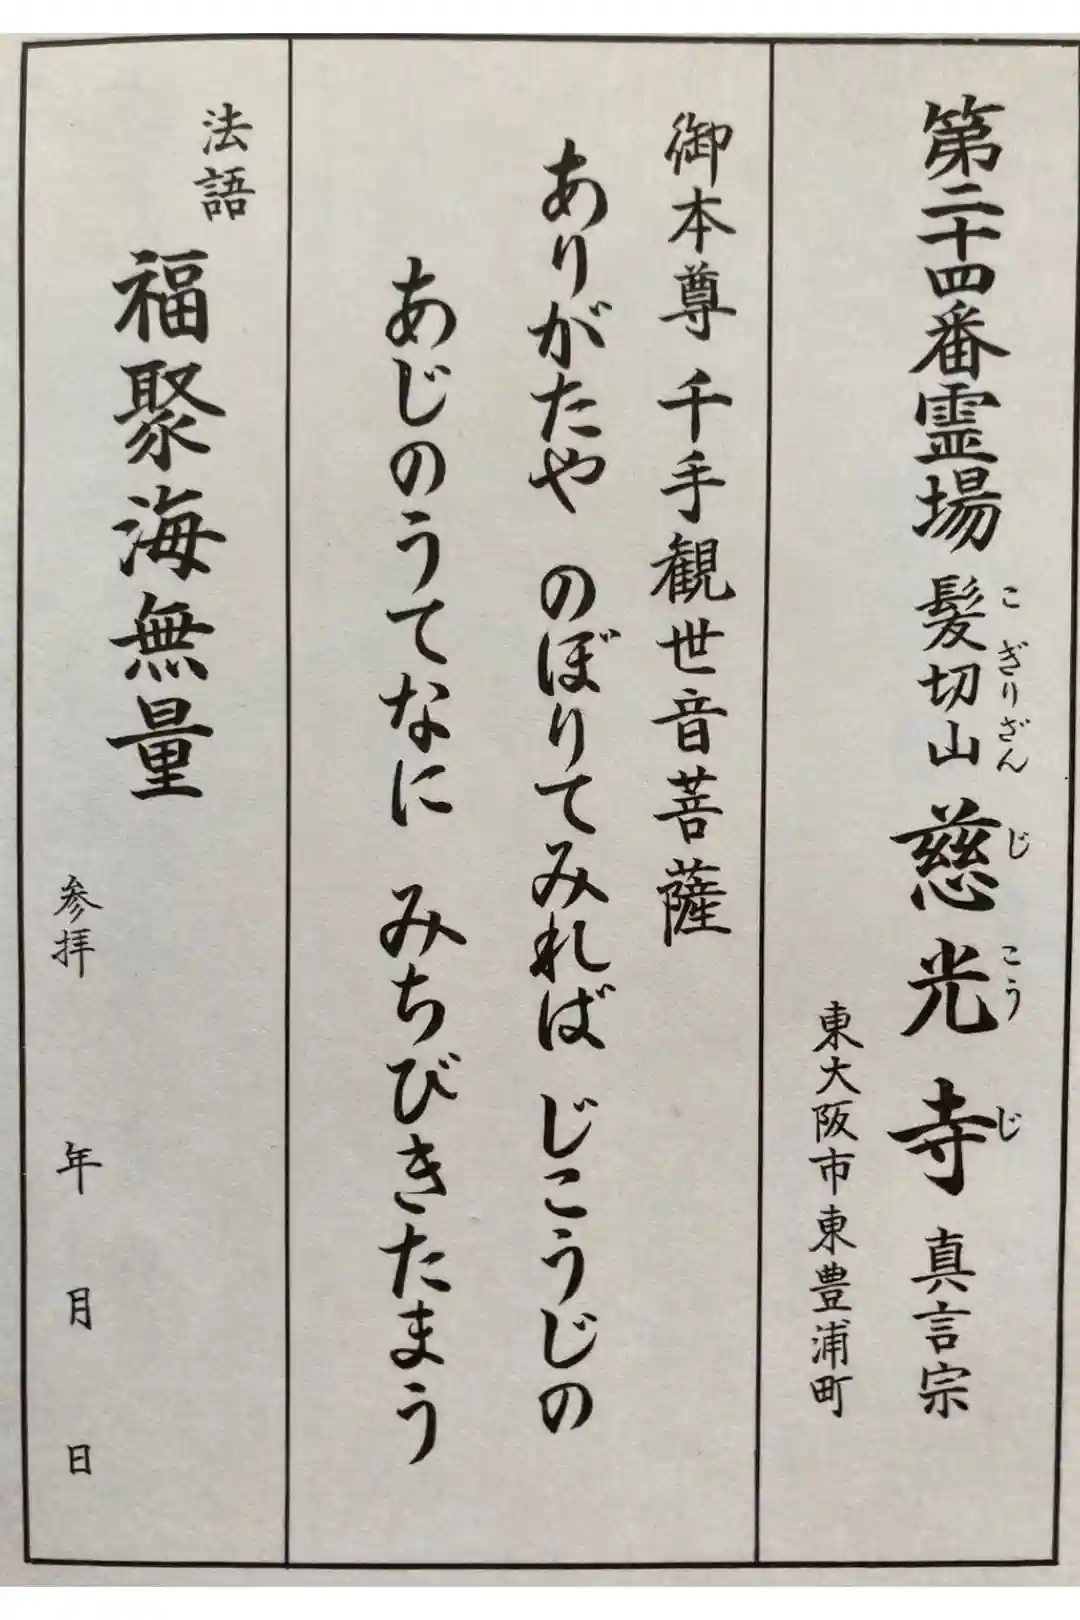 第二十四番霊場 髪切山 慈光寺 真言宗
こぎりざん じこうじ
東大阪市東豊浦町
御本尊 千手観世音菩薩
ありがたや のぼりてみれば じこうじの
あじのうてなに みちびきたまう
法語
福聚海無量
参拝 年 月 日